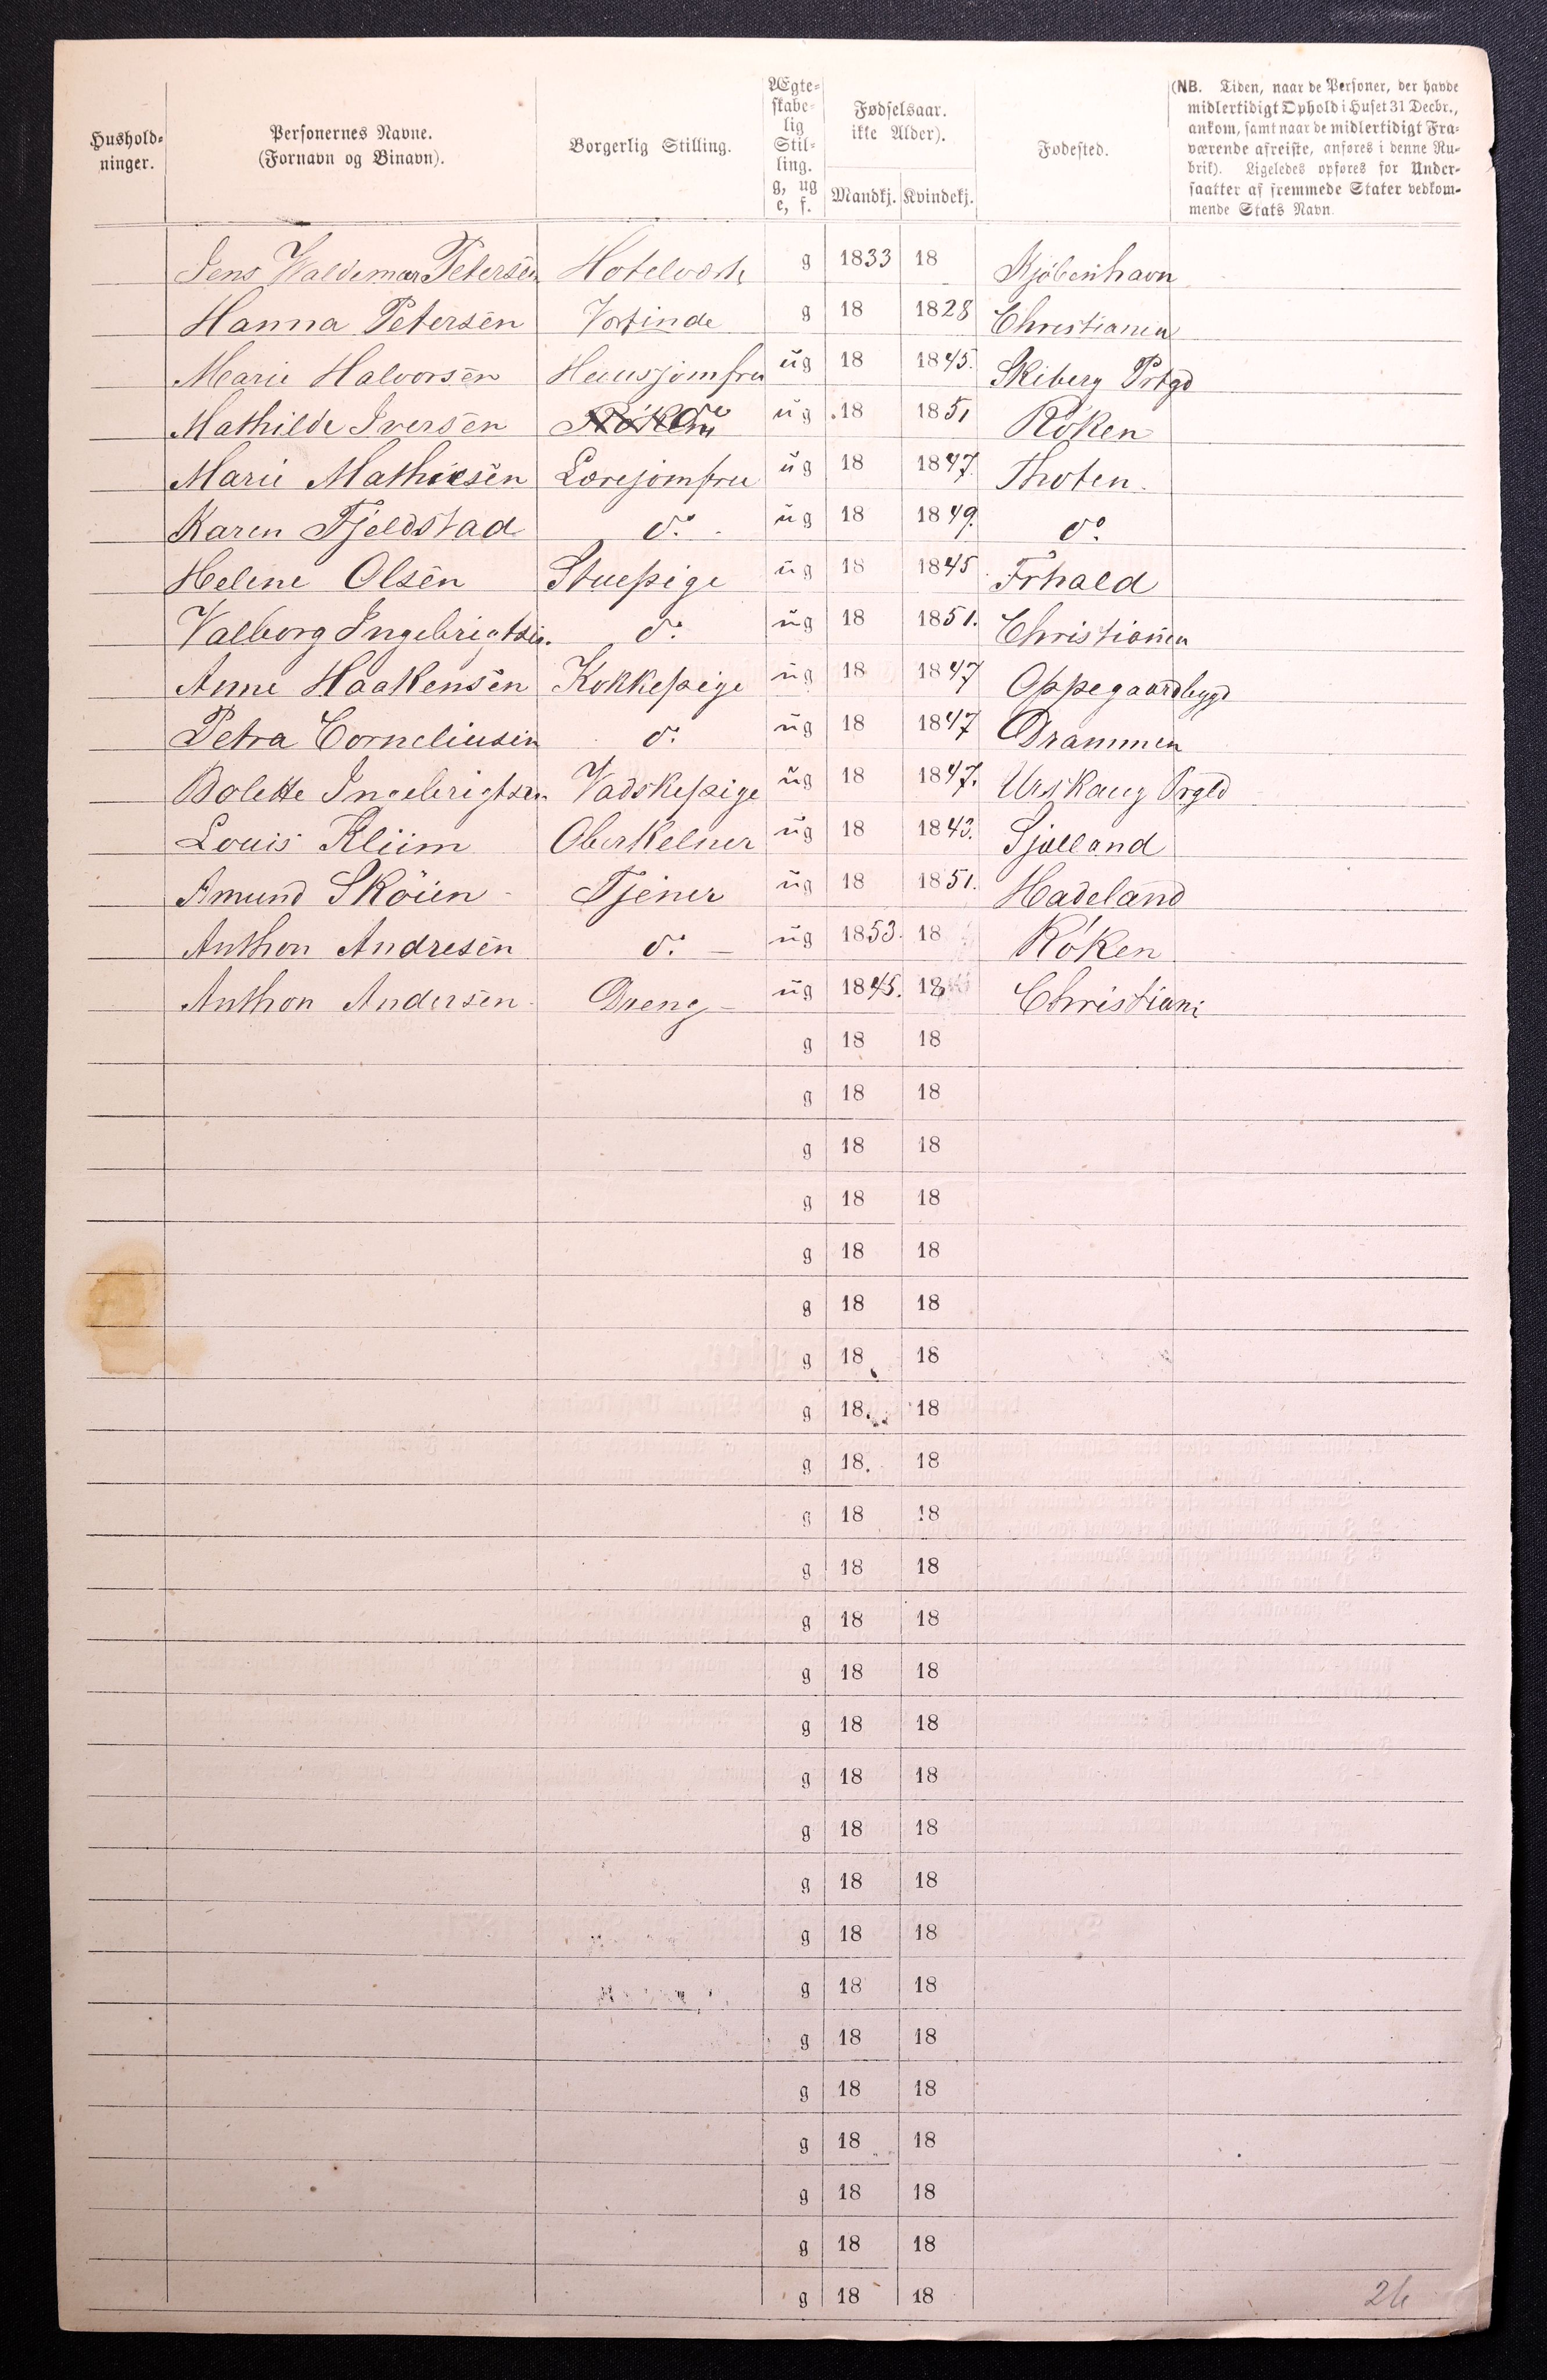 Hushold-
ninger.
Personernes Navne.
(Fornavn og Binavn).
Borgerlig Stilling.
Ægte-
skabe-
lig
Stil-
ling.
g, ug
e, f.
Fødselsaar.
ikke Alder).
Mandkj. Kvindekj.
Fødested.
(NB. Tiden, naar de Personer, der havde
midlertidigt Ophold i Huset 31 Decbr.,
ankom, samt naar de midlertidigt Fra-
værende afreiste, anføres i denne Ru-
brik). Ligeledes opføres for Under-
saatter af fremmede Stater vedkom-
mende Stats Navn.
Jens Waldemar Petersen Hotelvært g 1833 18 Kjöbenhavn
Hanna Petersen Vertinde g 18 1828 Christiania
Marie Halvorsen Huusjomfru ug 18 1845. Skiberg Prtgd
Mathilde Iversen do ug 18 1851 Röken
Marie Mathiesen Lærejomfru ug 18 1847. Thoten
Karen Fjeldstad do. ug 18 1849. do.
Helene Olsen Stuepige ug 18 1845 Frhald
Valborg Ingebrigtsen. do. ug 18 1851. Christiania
Anne Haakensen Kokkepige ug 18 1847 Oppegaardbygd
Petra Corneliusen do. ug 18 1847 Drammen
Bolette Ingebrigtsen Vadskepige ug 18 1847. Urskaug Prgld
Louis Kliim Oberkelner ug 18 1843. Sjælland
Amund Sköien Tjener ug 18 1851. Hadeland
Anthon Andresen do. ug 1853. 18 Röken
Anthon Andersen Dreng ug 1845. 18 Christiani
g 18 18
g 18 18
g 18 18
g 18 18
g 18 18
g 18 18
g 18 18
g 18 18
g 18 18
g 18 18
g 18 18
g 18 18
g 18 18
g 18 18
g 18 18
g 18 18
g 18 18
g 18 18
g 18 18
g 18 18
g 18 18
g 18 18
g 18 18
g 18 18
g 18 18
26